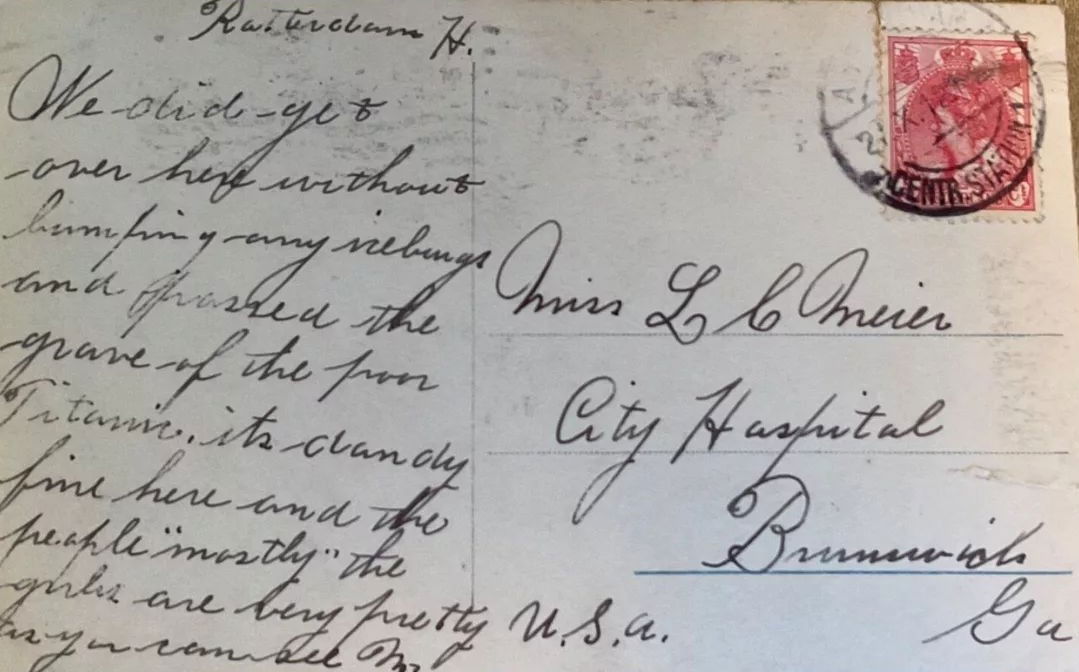 Rotterdam H.
We did get
over here without
bumping any icebergs
and passed the
grave of the poor
Titanic. its dandy
fine here and the
people "mostly" the
girls are very pretty
as you can see
Miss L C Meier
City Hospital
Brunswick
Ga
U.S.A.
CENTR. STATION